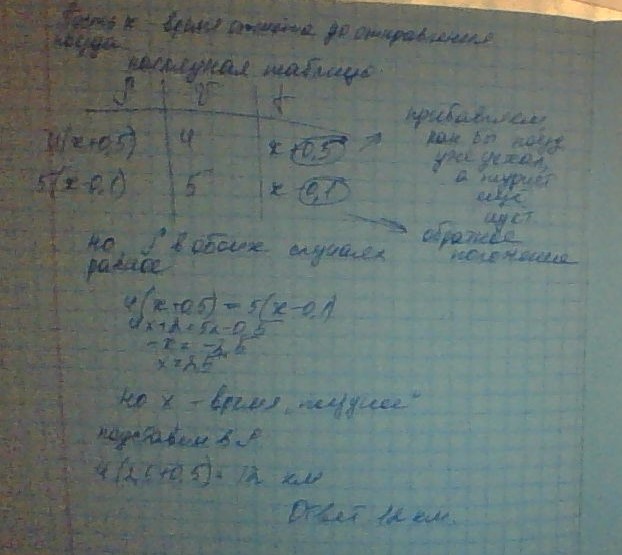 Пусть x - время до отправления
поезда
таблицу
S V t
4(x+0,5) 4 x+0,5
5(x-0,1) 5 x-0,1
прибавляем
как бы поезд
уже уехал,
а турист
еще
идет
обратное
положение
но S в обоих случаях
равное
4(x+0,5) = 5(x-0,1)
4x+2=5x-0,5
-x = -2,5
x=2,5
но x - время
подставим в S
4(2,5+0,5)=12 км
Ответ 12 км.